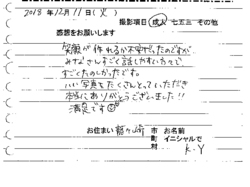 2018年12月11日(火)
撮影項目 成人 七五三 その他
感想をお願いします
笑顔が作れるか不安だったのですが
みなさんすごく話しやすい方々で
すごくたのしかったです。
いい写真をたくさんとっていただき
本当にありがとうございました!!
満足です
お住まい 龍ヶ崎 市 町 村 お名前 イニシャルで K・Y